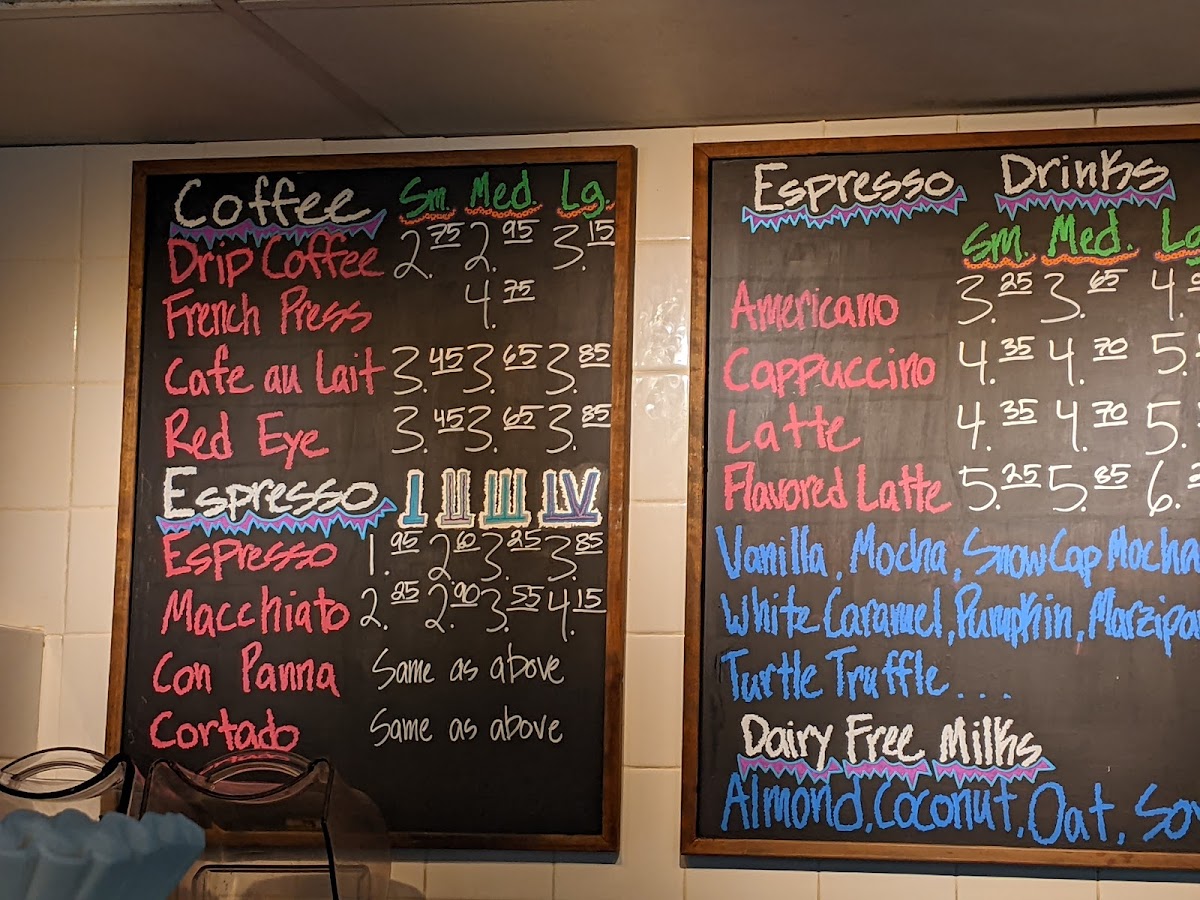 Coffee Sm. Med. Lg.
Drip Coffee 2.75 2.95 3.15
French Press 4.75
Cafe au Lait 3.45 3.65 3.85
Red Eye 3.45 3.65 3.85
Espresso I II III IV
Espresso 1.95 2.60 3.25 3.85
Macchiato 2.25 2.90 3.55 4.15
Con Panna Same as above
Cortado Same as above
Espresso Drinks
Sm. Med.
Americano 3.25 3.65 4.
Cappuccino 4.35 4.70 5.
Latte 4.35 4.70 5.
Flavored Latte 5.25 5.85 6.
Vanilla, Mocha, SnowCap Mocha
White Caramel, Pumpkin,
Turtle Truffle...
Dairy Free Milks
Almond, Coconut, Oat,